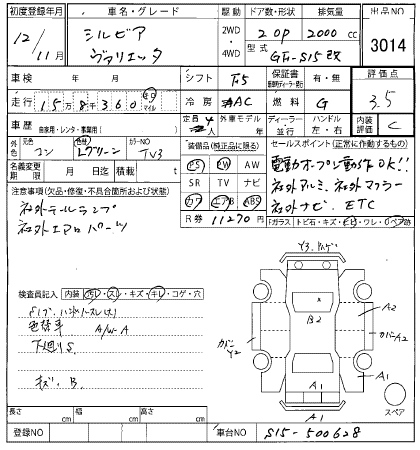 初度登録年月 車名・グレード 駆動 ドア数・形状 排気量 出品NO
12/11月 シルビア ヴァリエッタ 2WD・4WD 2 OP 2000 cc 3014
型式 GF-S15改
車検 年 月 シフト F5 保証書 有・無 評価点
走行 15万8千360 km マイル 冷房 AC 燃料 G 3.5
車歴 自家用・レンタ・事業用( ) 定員 4人 外車モデル 年 ディーラー 並行 ハンドル 左・右 内装評価 C
外色 元色 コン 色替 Lグリーン カラーNO TV3
名義変更期限 月 日迄 積載 t
装備品(純正品に限る)
PS PW AW
SR TV ナビ
カワ エアB ABS
R券 11270円
セールスポイント(正常に作動するもの)
電動オープン動作OK!!
社外アルミ、社外マフラー
社外ナビ ETC
Fガラス トビ石・キズ・ヒビ・ワレ・リペア跡
注意事項(欠品・修復・不具合箇所および状態)
社外テールランプ
社外エアロパーツ
検査員記入 内装 ヨゴレ・スレ・キズ・キレ・コゲ・穴
色替車 A/W A
下廻りS
キズ、B
B2
A2
カバンA2
カバンY2
A1
A1
スペア
長さ cm 幅 cm 高さ cm
登録NO 車台NO S15-500628